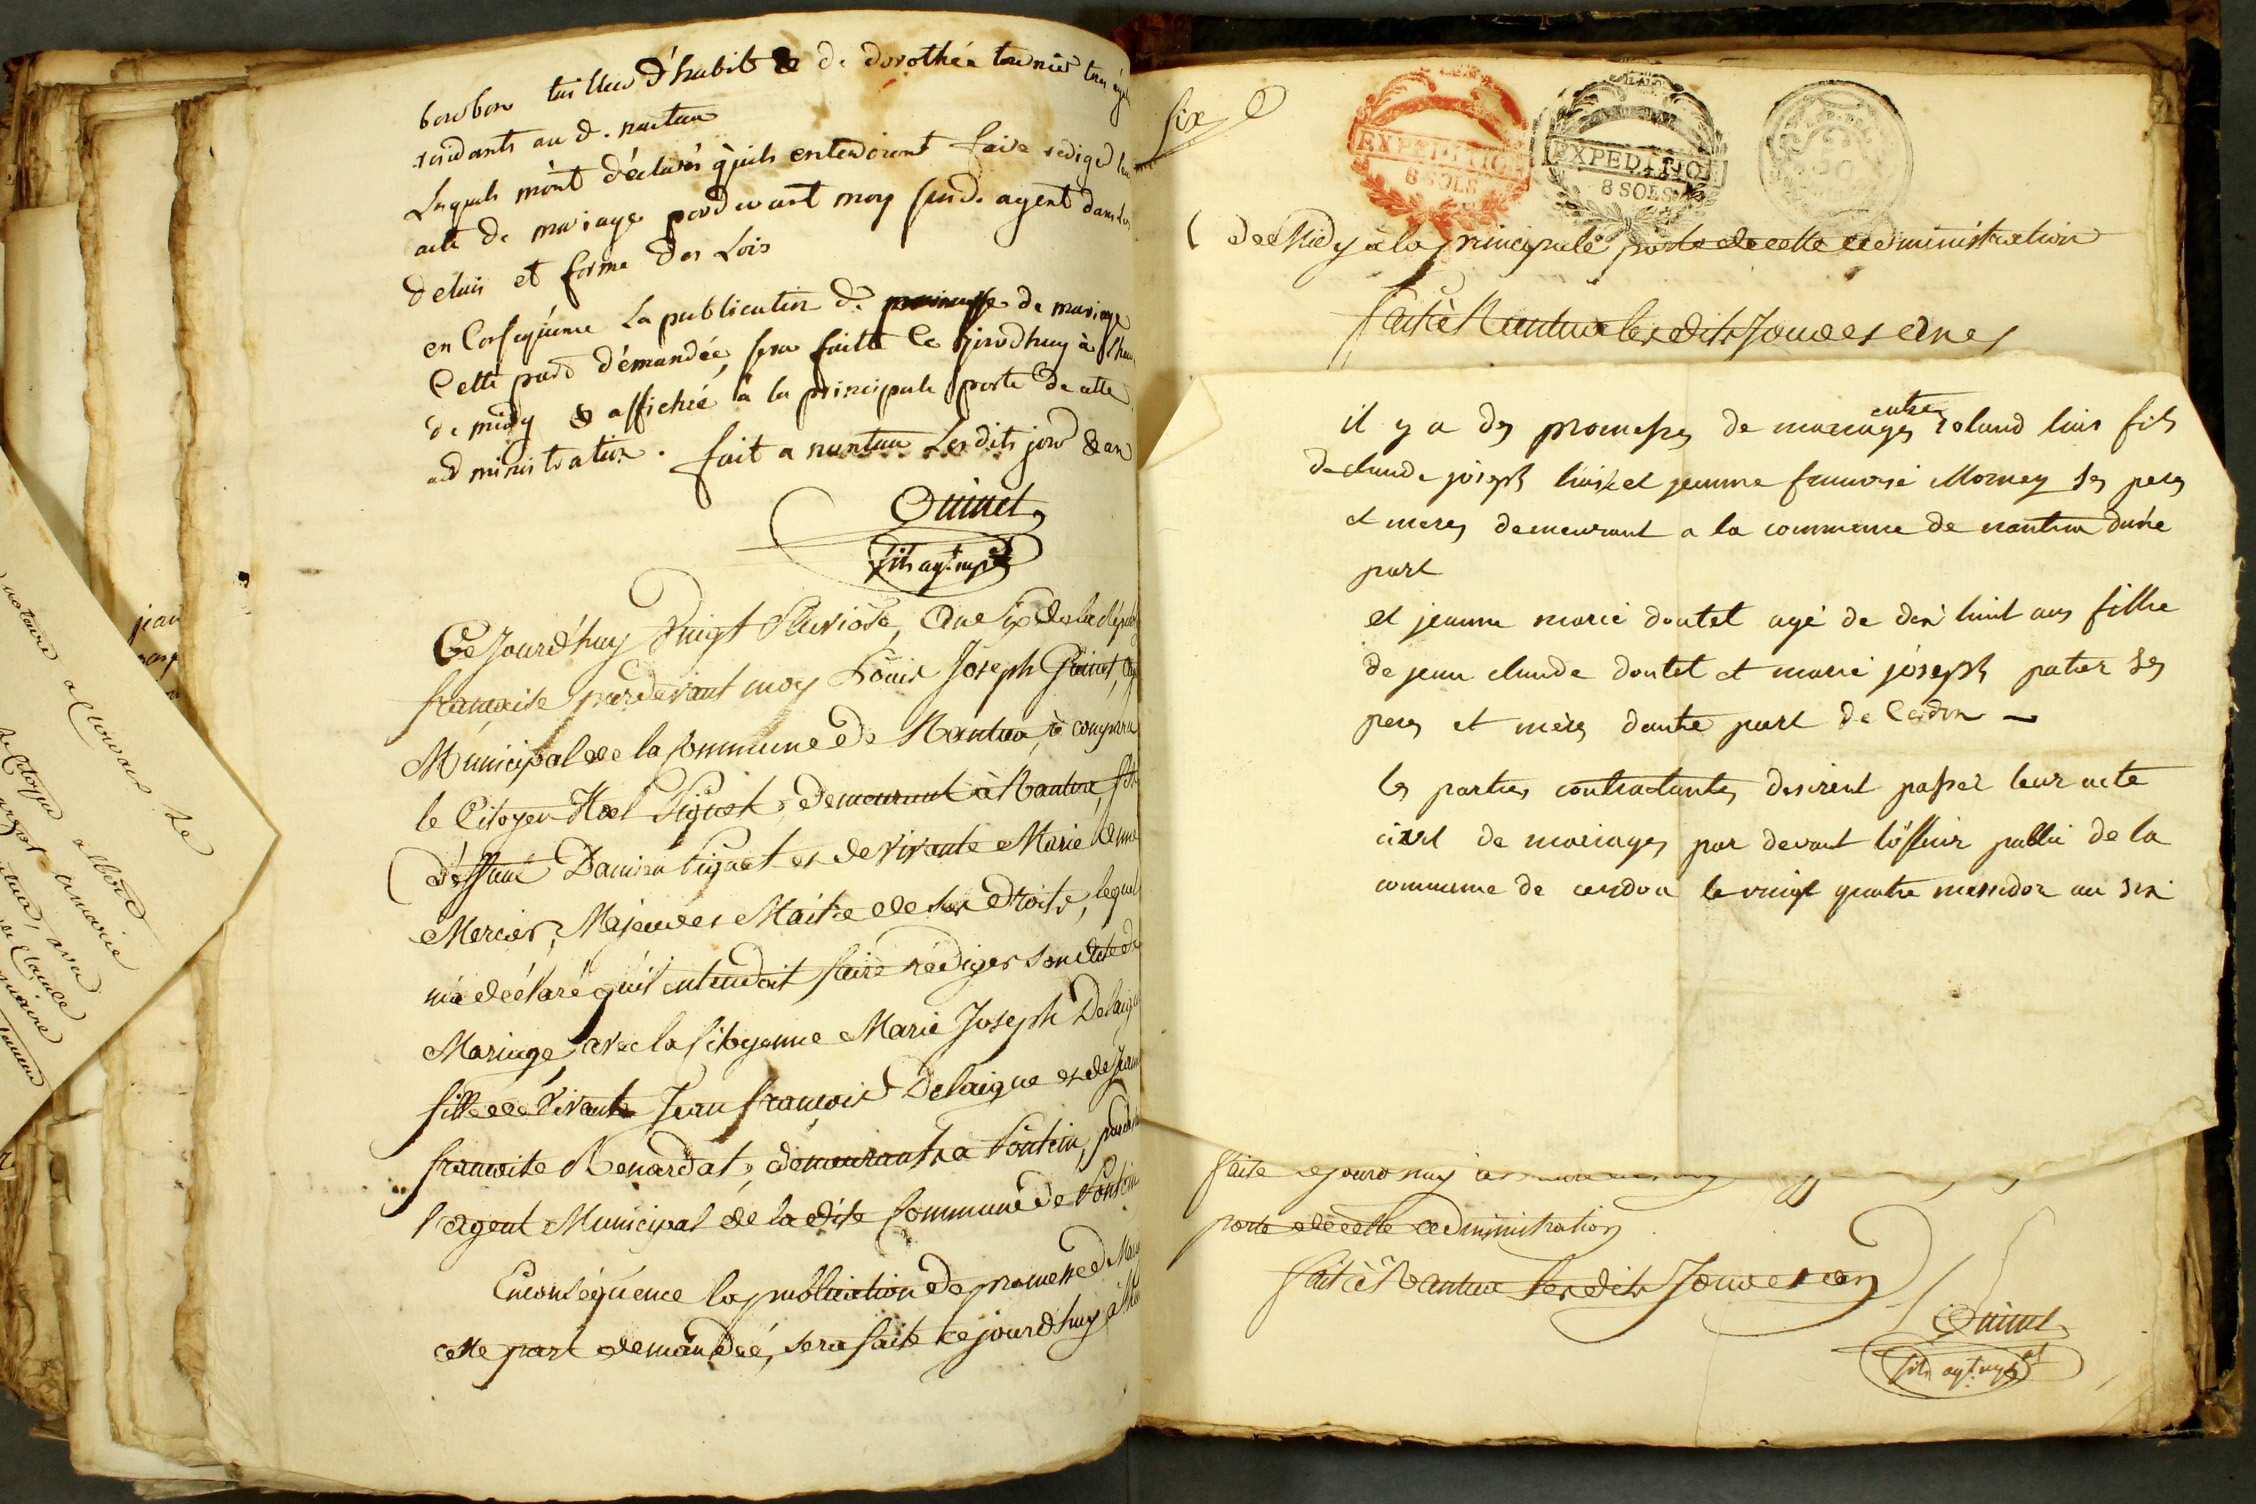 bourbon tailleur d'habit & de dorothée tournier
residants au d. nantua
Lesquels m'ont déclarés qu'ils entendoient faire rédiger leur
acte de mariage pardevant moy susd. agent dans les
délais et forme des Lois
en Conséquence La publication de promesse de mariage
Cette part démandée, sera faitte Ce jourdhuy à
de midy & affichée à la principale porte de cette
administration. fait a nantua Lesdits jour & an
Quinet
fils agt. mpal
Ce Jourd'huy Vingt Pluviose, an Six de la
francaise pardevant moy Louis Joseph Quinet,
Municipal de la Commune de Nantua, à comparu
le Citoyen Noel Piquet, demeurant à Nantua, fils
déffunt Damien Piquet et de vivante Marie
Mercier, Majeur et Maitre de ses droits, lequel
m'a déclaré qu'il entendoit faire rédiger son acte de
Mariage, avec la Citoyenne Marie Joseph Delaigue
fille de vivante Jean françois Delaigue et de
francoise Renardat, demeurants a Pontcin,
l'agent Municipal de la dite Commune de Pontcin
En conséquence la publication de promesse de
cette part demandée, sera faite ce jourd'huy à
six
EXPEDITION
8 SOLS
EXPEDITION
8 SOLS
de Midy à la principale porte de cette administration
fait à Nantua lesdits Jour et an
il y a des promesses de mariages entre roland
fils
de claude joseph et jeanne francoise Mornay ses peres
et meres demeurant a la commune de nantua dune
part
et jeanne marie doutet agé de dix huit ans fillie
de jean claude doutet et marie joseph ses
peres et mères dautre part de Cerdon
les parties contractantes desirent passer leur acte
civil de mariages par devant l'officier public de la
commune de cerdon le vingt quatre messidor an six
faite cejourdhuy
porte de cette administration
fait à Nantua lesdits Jour et an
Quinet
fils agt. mpal
notaire a
Le
Citoyen
marie
avec
Claude